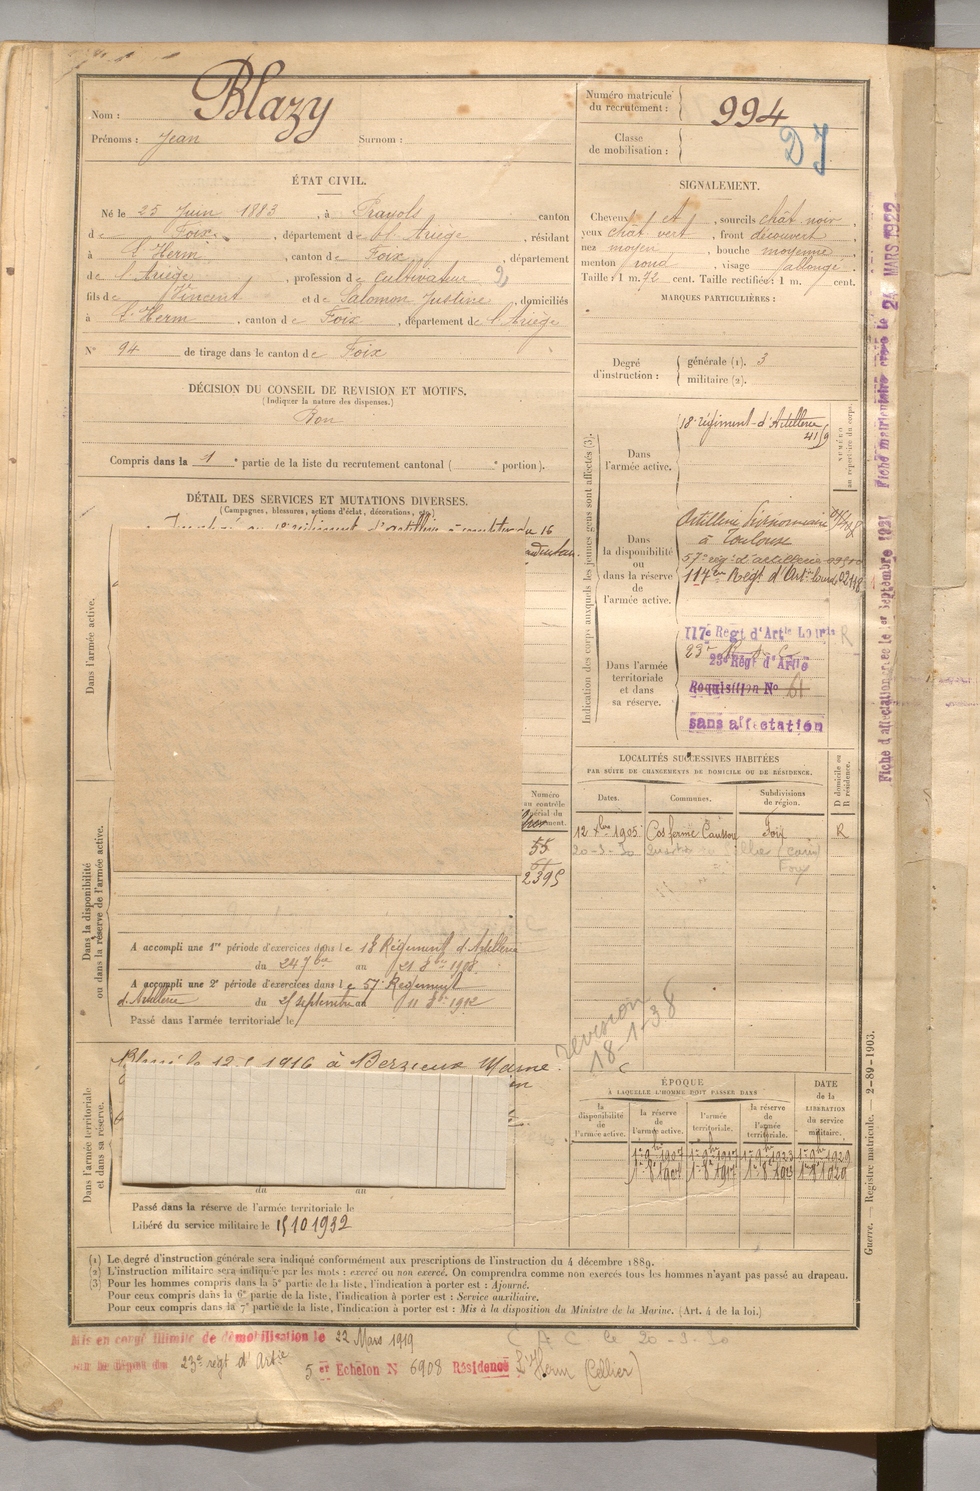 Nom : Blazy
Prénoms : Jean Surnom :
ÉTAT CIVIL.
Né le 25 Juin 1883, à Prayols canton
de Foix, département de l'Ariège, résidant
à l'Herm, canton de Foix, département
de l'Ariège, profession de Cultivateur
fils de Vincent et de Salomon Justine, domiciliés
à l'Herm, canton de Foix, département de l'Ariège
N° 94 de tirage dans le canton de Foix
DÉCISION DU CONSEIL DE REVISION ET MOTIFS.
(Indiquer la nature des dispenses.)
Bon
Compris dans la 1e partie de la liste du recrutement cantonal ( e portion).
DÉTAIL DES SERVICES ET MUTATIONS DIVERSES.
(Campagnes, blessures, actions d'éclat, décorations, etc.)
à compter du 16
Dans l'armée active.
Dans la disponibilité
ou dans la réserve de l'armée active.
Numéro
au contrôle
spécial du
55
2395
A accompli une 1re période d'exercices dans le 18 Régiment d'Artillerie
du 24 7bre au 21 8bre 1908
A accompli une 2e période d'exercices dans le 57e Régiment
d'Artillerie du 25 septembre au 11 8bre 1912
Passé dans l'armée territoriale le
Dans l'armée territoriale
et dans sa réserve.
Blessé le 12 1916 à Berzieux Marne
du au
Passé dans la réserve de l'armée territoriale le
Libéré du service militaire le 15 10 1932
Numéro matricule
du recrutement : 994
DJ
Classe
de mobilisation :
SIGNALEMENT.
Cheveux, sourcils chât noir
yeux chât vert, front découvert
nez moyen, bouche moyenne
menton rond, visage allongé
Taille : 1 m. 72 cent. Taille rectifiée : 1 m. cent.
MARQUES PARTICULIÈRES :
Degré
d'instruction :
générale (1). 3
militaire (2).
Indication des corps auxquels les jeunes gens sont affectés (3).
Dans
l'armée active.
18e régiment d'Artillerie
NUMÉRO
au répertoire du corps.
Dans
la disponibilité
ou
dans la réserve
de
l'armée active.
Artillerie Divisionnaire
à Toulouse
57e rég. d'artillerie
117e Régt d'Art. lourde 02118
Dans l'armée
territoriale
et dans
sa réserve.
117e Régt d'Artie Lourde R
23e Régt d'Artie
Réquisition No 61
sans affectation
LOCALITÉS SUCCESSIVES HABITÉES
PAR SUITE DE CHANGEMENTS DE DOMICILE OU DE RÉSIDENCE.
Dates. Communes. Subdivisions
de région.
D domicile ou
R résidence.
12 Xbre 1905 Cos ferme Caussou Foix R
20-3-30
Foix
revision
18-1-38
ÉPOQUE
À LAQUELLE L'HOMME DOIT PASSER DANS
la
disponibilité
de
l'armée active.
la réserve
de
l'armée active.
l'armée
territoriale.
la réserve
de
l'armée
territoriale.
DATE
de la
LIBÉRATION
du service
militaire.
Guerre. — Registre matricule. — 2-89-1903.
Fiche d'affectation créée le 1er septembre 1921 Fiche matriculaire créée le 24 MARS 1922
(1) Le degré d'instruction générale sera indiqué conformément aux prescriptions de l'instruction du 4 décembre 1889.
(2) L'instruction militaire sera indiquée par les mots : exercé ou non exercé. On comprendra comme non exercés tous les hommes n'ayant pas passé au drapeau.
(3) Pour les hommes compris dans la 5e partie de la liste, l'indication à porter est : Ajourné.
Pour ceux compris dans la 6e partie de la liste, l'indication à porter est : Service auxiliaire.
Pour ceux compris dans la 7e partie de la liste, l'indication à porter est : Mis à la disposition du Ministre de la Marine. (Art. 4 de la loi.)
Mis en congé illimité de démobilisation le 22 Mars 1919
C A C le 20-3-30
23e régt d'Artie
5er Echelon N° 6908 Résidence L'Herm (Cellier)